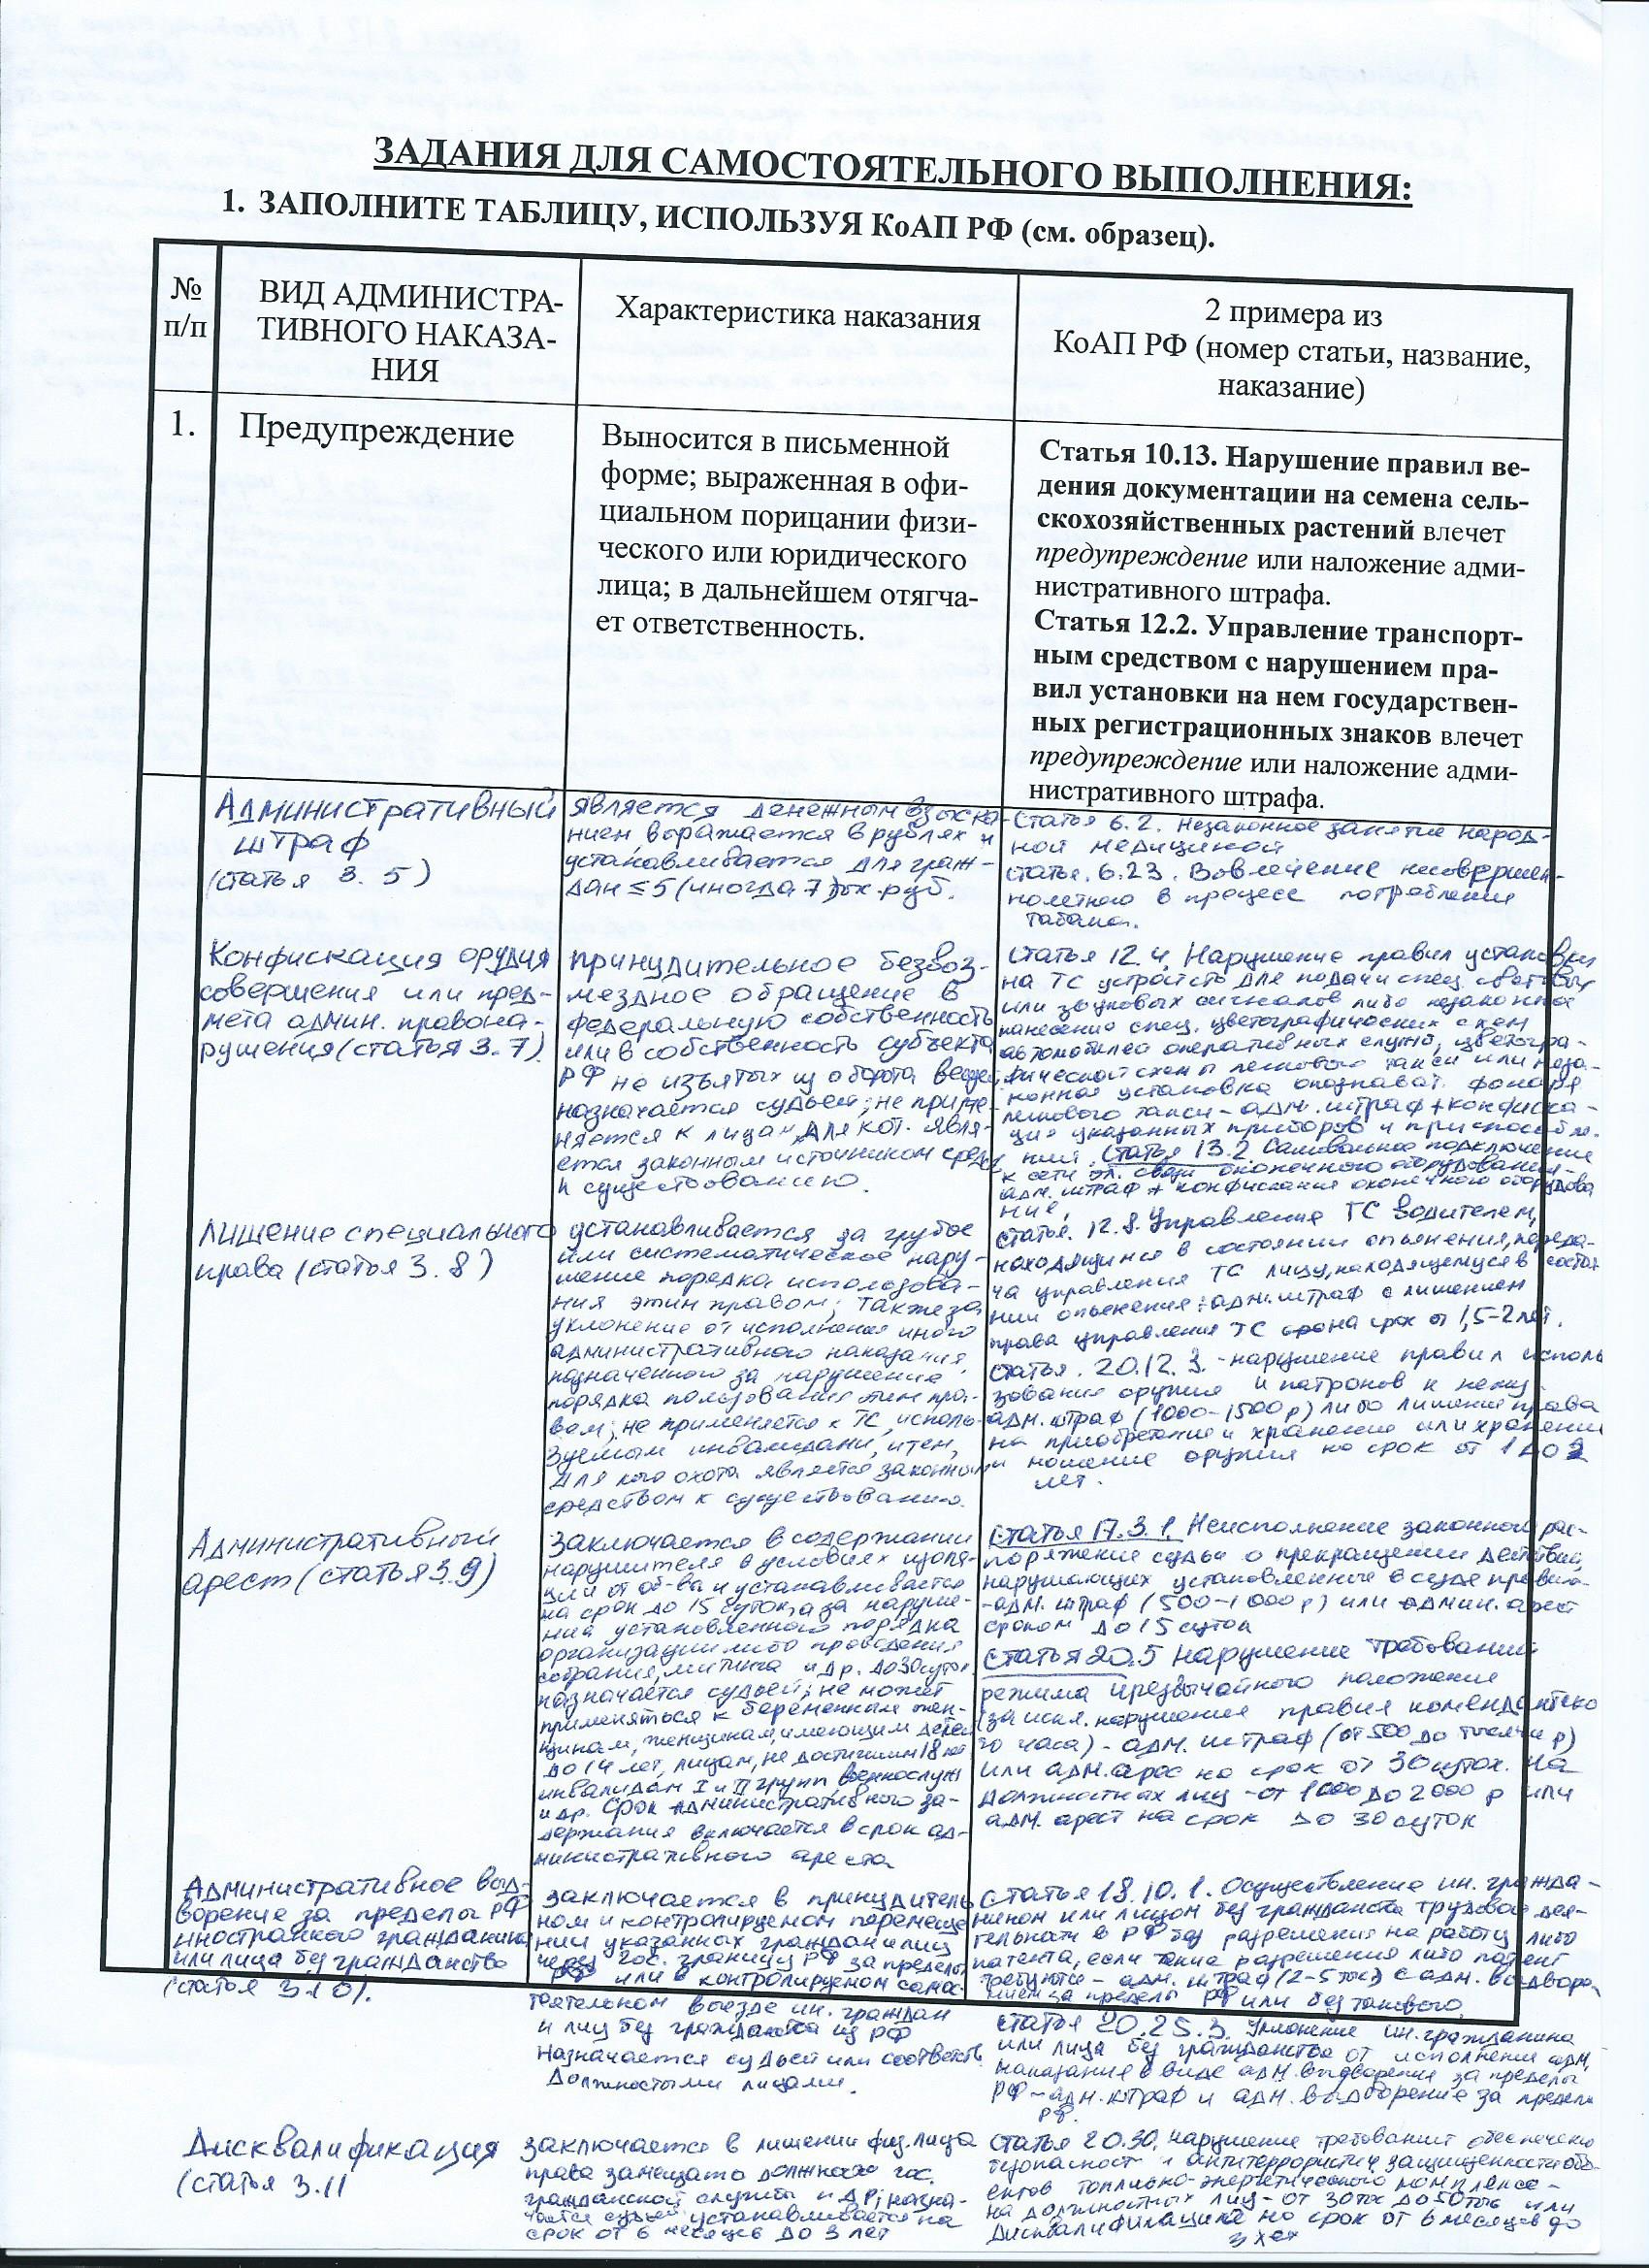 ЗАДАНИЯ ДЛЯ САМОСТОЯТЕЛЬНОГО ВЫПОЛНЕНИЯ:
1. ЗАПОЛНИТЕ ТАБЛИЦУ, ИСПОЛЬЗУЯ КоАП РФ (см. образец).
№
п/п
ВИД АДМИНИСТРА-
ТИВНОГО НАКАЗА-
НИЯ
Характеристика наказания
2 примера из
КоАП РФ (номер статьи, название,
наказание)
1.
Предупреждение
Выносится в письменной
форме; выраженная в офи-
циальном порицании физи-
ческого или юридического
лица; в дальнейшем отягча-
ет ответственность.
Статья 10.13. Нарушение правил ве-
дения документации на семена сель-
скохозяйственных растений влечет
предупреждение или наложение адми-
нистративного штрафа.
Статья 12.2. Управление транспорт-
ным средством с нарушением пра-
вил установки на нем государствен-
ных регистрационных знаков влечет
предупреждение или наложение адми-
нистративного штрафа.
Административный
штраф
(статья 3.5)
является денежным взыска-
нием, выражается в рублях и
устанавливается для граж-
дан ≤ 5 (иногда 7) тыс. руб.
Статья 6.2. Незаконное занятие народ-
ной медициной
статья. 6.23. Вовлечение несовершен-
нолетнего в процесс потребления
табака.
Конфискация орудия
совершения или пред-
мета админ. правона-
рушения (статья 3.7)
принудительное безвоз-
мездное обращение в
федеральную собственность
или в собственность субъекта
РФ не изъятых из оборота вещей,
назначается судьей; не приме-
няется к лицам, для кот. явля-
ется законным источником средств
к существованию.
Статья 12.4. Нарушение правил установки
на ТС устройств для подачи спец. световых
или звуковых сигналов либо незаконное
нанесение спец. цветографических схем
автомобилей оперативных служб, цветогра-
фической схемы легкового такси или неза-
конная установка опознават. фонаря
легкового такси - адм. штраф + конфиска-
ция указанных приборов и приспособле-
ний. Статья 13.2 Самовольное подключение
к сети эл. связи оконечного оборудования -
адм. штраф + конфискация оконечного оборудова
ния.
Лишение специального
права (статья 3.8)
устанавливается за грубое
или систематическое нару-
шение порядка использова-
ния этим правом; также за
уклонение от исполнения иного
административного наказания,
назначенного за нарушение
порядка пользования этим пра-
вом; не применяется к ТС, исполь-
зуемым инвалидами, и тем,
для кого охота является законным
средством к существованию.
статья. 12.8. Управление ТС водителем,
находящимся в состоянии опьянения, переда-
ча управления ТС лицу, находящемуся в состоя
нии опьянения: адм. штраф с лишением
права управления ТС на срок от 1,5-2 лет.
статья. 20.12.3. - нарушение правил исполь
зования оружия и патронов к нему -
адм. штраф (1000-1500 р) либо лишение права
на приобретение и хранение или хранение
и ношение оружия на срок от 1 до 2
лет.
Административный
арест (статья 3.9)
Заключается в содержании
нарушителя в условиях изоля-
ции от об-ва и устанавливается
на срок до 15 суток, а за наруше-
ние установленного порядка
организации либо проведения
собрания, митинга и др. до 30 суток
назначается судьей; не может
применяться к беременным жен-
щинам, женщинам, имеющим детей
до 14 лет, лицам, не достигшим 18 лет
инвалидам I и II групп военнослуж
и др. Срок административного за-
держания включается в срок ад-
министративного ареста
Статья 17.3.1. Неисполнение законного рас-
поряжения судьи о прекращении действий,
нарушающих установленные в суде правила
- адм. штраф (500-1000 р) или админ. арест
сроком до 15 суток
Статья 20.5 нарушение требований
режима чрезвычайного положения
(за искл. нарушения правил комендантско
го часа) - адм. штраф (от 500 до тысячи р)
или адм. арес на срок от 30 суток. На
должностных лиц - от 1000 до 2000 р или
адм. арест на срок до 30 суток
Административное выд-
ворение за пределы РФ
иностранного гражданина
или лица без гражданства
(статья 3.10).
заключается в принудитель
ном и контролируемом перемеще
нии указанных граждан и лиц
через гос. границу РФ за пределы
РФ или в контролируемом самос-
тоятельном выезде ин. граждан
и лиц без гражданства из РФ
Назначается судьей или соответств.
должностными лицами.
Статья 18.10.1. Осуществление ин. гражда-
нином или лицом без гражданства трудовой дея-
тельности в РФ без разрешения на работу либо
патента, если такие разрешения либо патент
требуются - адм. штраф (2-5 тыс) с адм. выдворе-
нием за пределы РФ или без такового.
статья 20.25.3. Уклонение ин. гражданина
или лица без гражданства от исполнения адм.
наказания в виде адм. выдворения за пределы
РФ - адм. штраф и адм. выдворение за пределы
РФ.
Дисквалификация
(статья 3.11
заключается в лишении физ. лица
права замещать должности гос.
гражданской службы и др; назна-
чается судьей устанавливается на
срок от 6 месяцев до 3 лет
Статья 20.30. нарушение требований обеспечения
безопасности и антитеррористич защищенности объ-
ектов топливно-энергетического комплекса -
на должностных лиц - от 30 тыс до 50 тыс или
Дисквалификация на срок от 6 месяцев до
3 лет